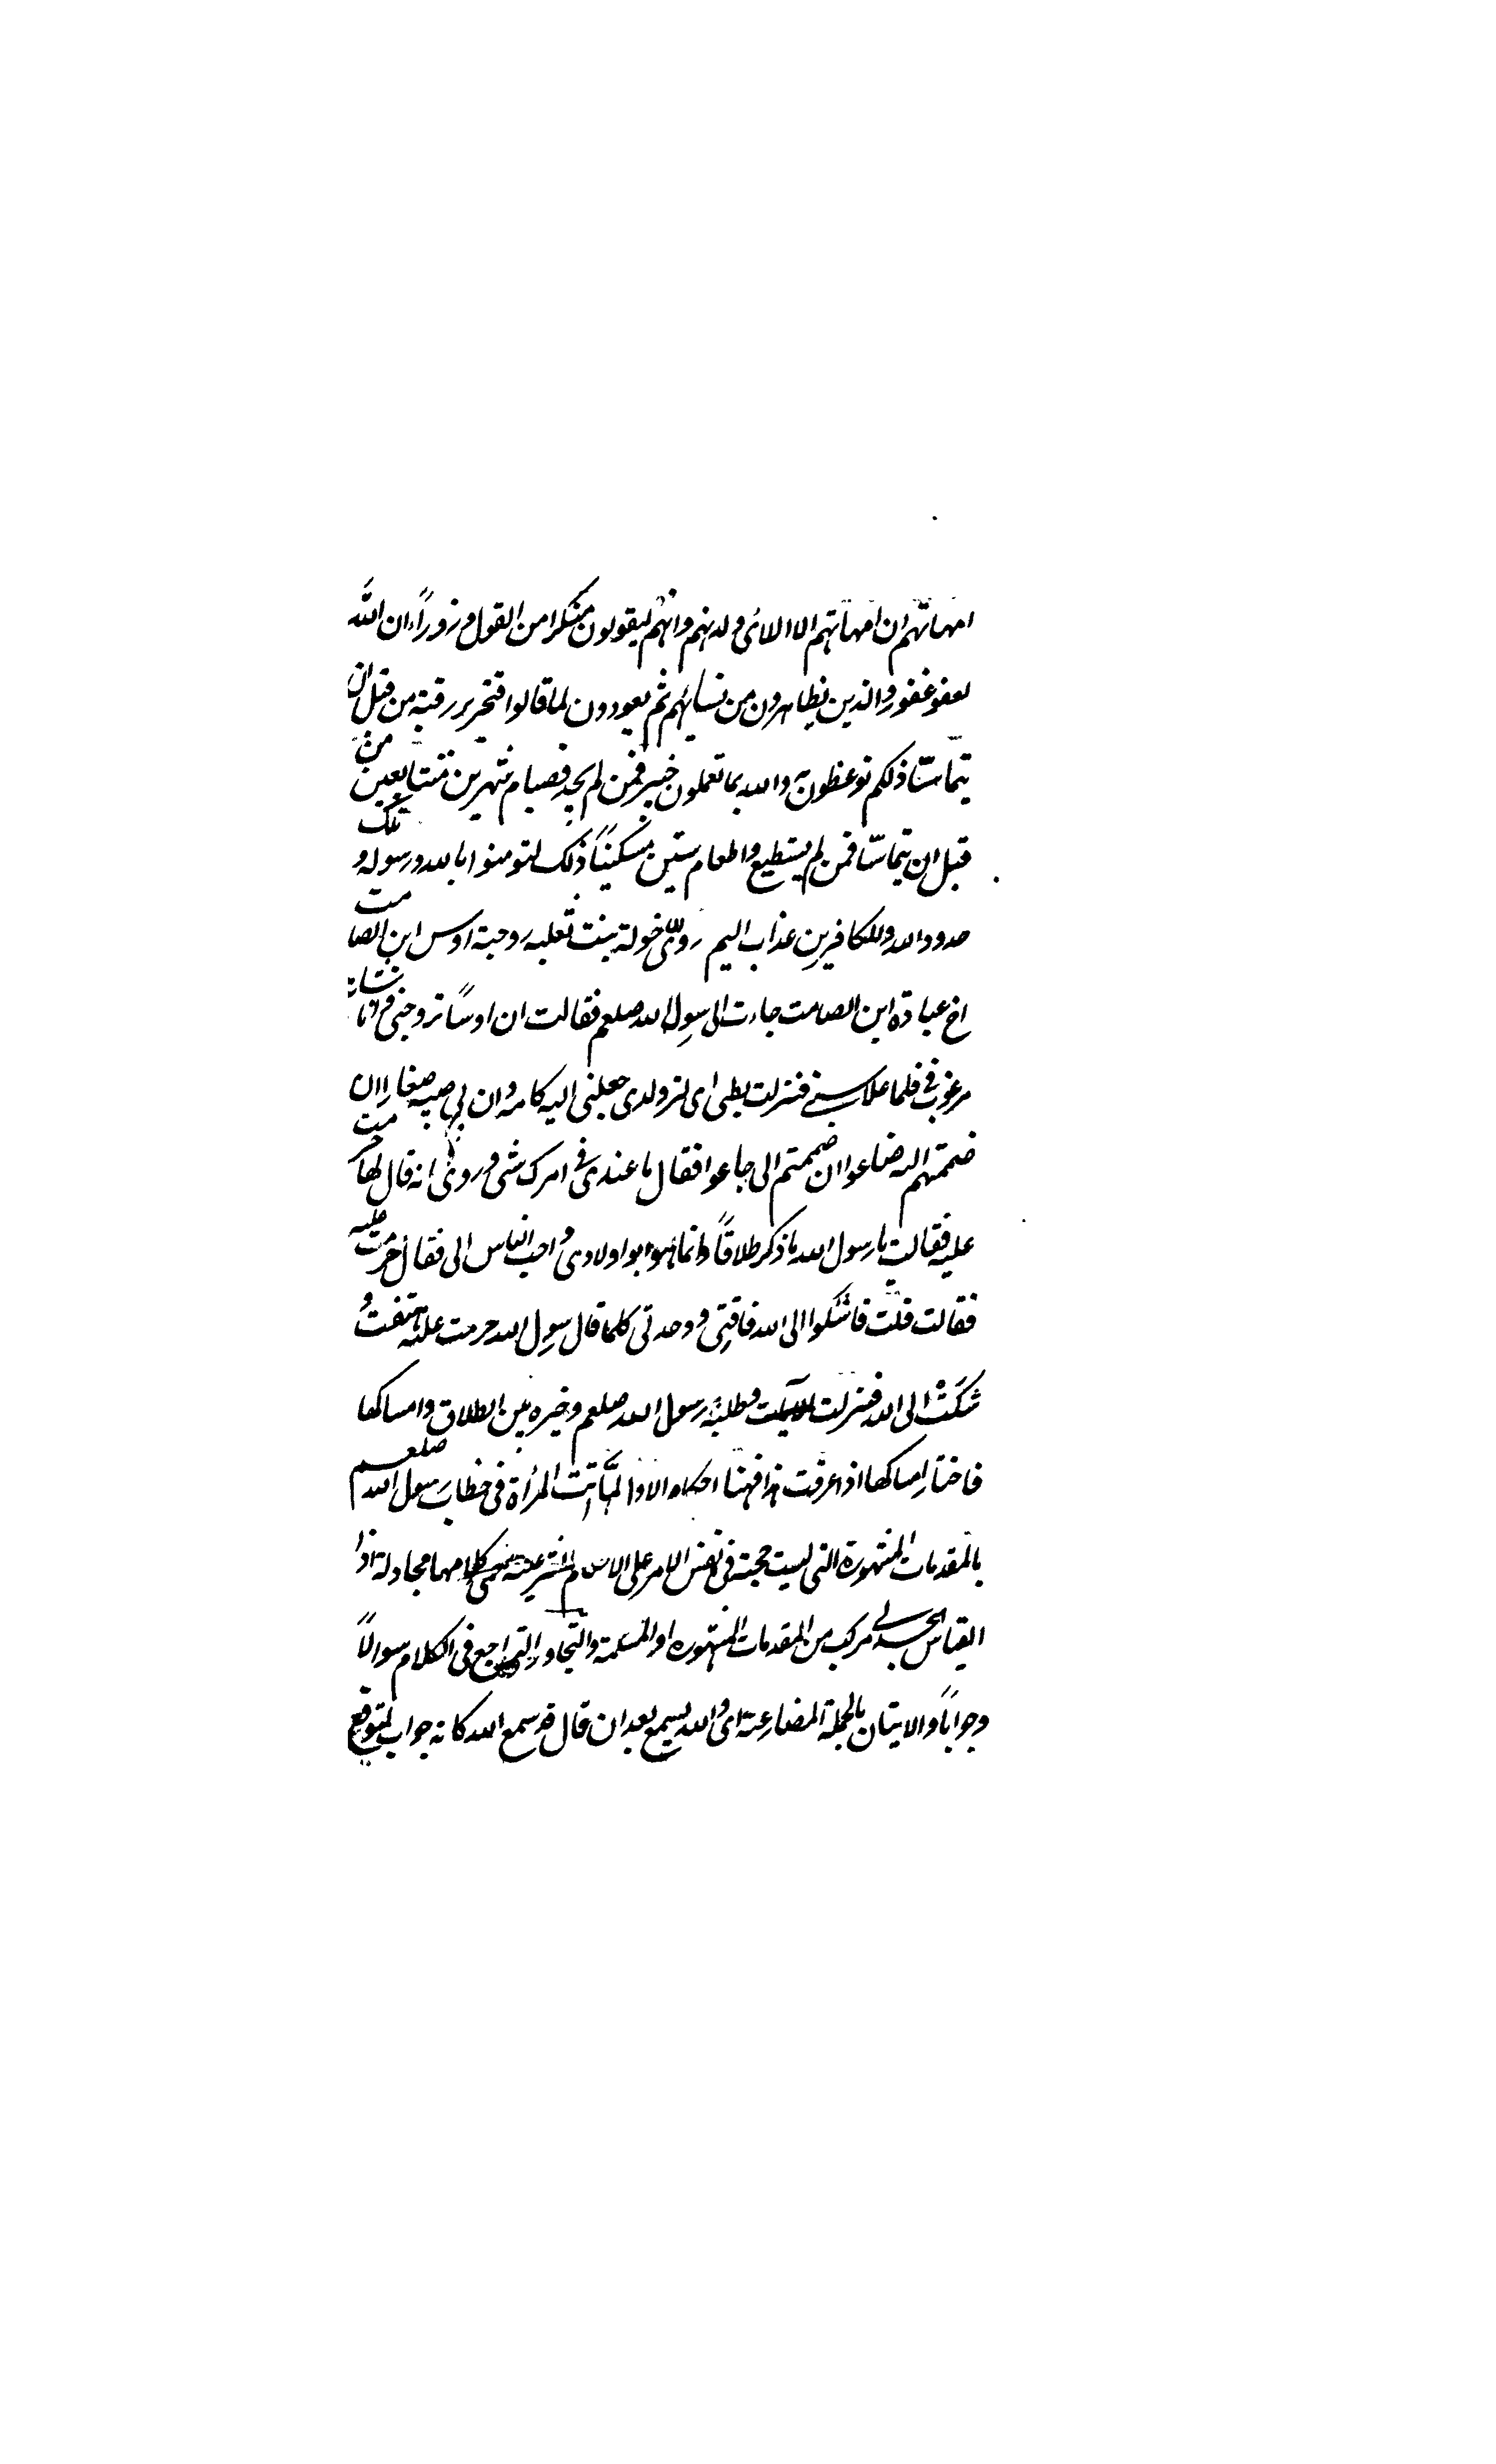 امهاتهم ان امهاتهم الا اللائى ولدنهم وانهم ليقولون منكرا من القول وزوراً وان الله
لعفو غفور والذين يظاهرون من نسائهم ثم يعودون لما قالوا فتحرير رقبة من قبل ان
يتماسّا ذلكم توعظون به والله بما تعملون خبير فمن لم يجد فصيام شهرين متتابعين من
قبل ان يتماسّا فمن لم يستطيع واطعام ستين مسكيناً ذلك لتومنوا بالله ورسوله و تلك
حدود الله وللكافرين عذاب اليم روى خولة بنت ثعلبه زوجة اوس ابن الصامت
اخ عبادة ابن الصامت جاءت الى رسول الله صلعم فقالت ان اوساً تزوجنى وانا شابة
مرغوب فى فلما علا سنى فنزلت بطنى اى نثر ولدى جعلنى اليه كامه وان لى صبية صغارا ان
ضممتهم اليه ضاعوا ان ضممتهم الى جاعوا فقال ما عندى فى امرك شى وروى انه قال لها حرمت
عليه فقالت يا رسول الله ما ذكر طلاقاً وانما هو ابو اولادى واحب الناس الى فقال حرمت عليه
فقالت فاشكوا الى الله فاقتى ووحدتى كلما قال رسول الله حرمت عليه هتفت و
شكت الى الله فنزلت وطلبه رسول الله صلعم وخيره بين الطلاق وامساكها
فاختار امساكها اذا عرفت هذا فهنا احكام الاول لما اتت المرأة فى خطاب رسول الله صلعم
بالمقدمات المشهورة التى ليست حجة فى نفس الامر على الاسلام الشريعة سمى كلامها مجادلة اذا
القياس الجدلى مركب من المقدمات المشهوره او المسلمة والتحاور التراجع فى الكلام سوالاً
وجواباً والاتيان بالجملة المضارعة اى والله يسمع بعد ان قال قد سمع الله كانه جواب لمتوقع